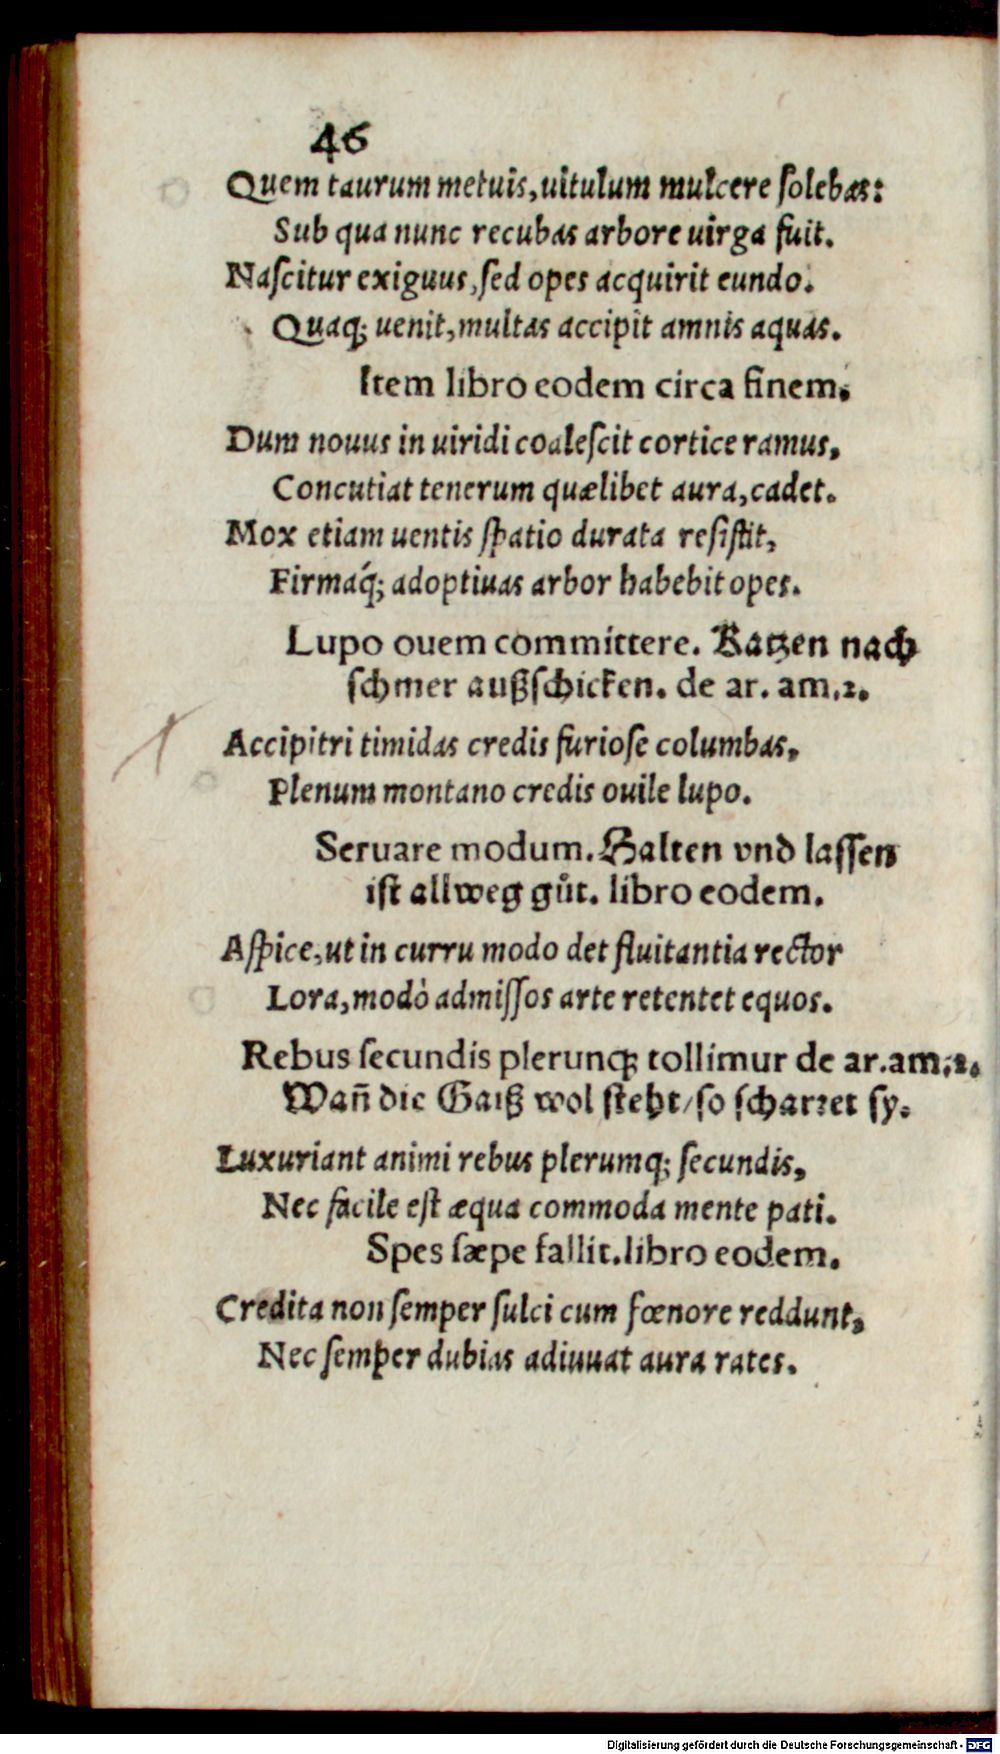 46
Quem taurum metuis, uitulum mulcere ſolebas:
Sub qua nunc recubas arbore uirga fuit.
Naſcitur exiguus, ſed opes acquirit eundo.
Quaq; uenit, multas accipit amnis aquas.
Item libro eodem circa finem.
Dum nouus in uiridi coaleſcit cortice ramus,
Concutiat tenerum quælibet aura, cadet.
Mox etiam uentis ſpatio durata reſiſtit,
Firmaq́; adoptiuas arbor habebit opes.
Lupo ouem committere. Katzen nach
ſchmer außſchicken. de ar. am. 2.
Accipitri timidas credis furioſe columbas,
Plenum montano credis ouile lupo.
Seruare modum. Halten vnd laſſen
iſt allweg gůt. libro eodem.
Aſpice, ut in curru modo det fluitantia rector
Lora, modò admiſſos arte retentet equos.
Rebus ſecundis plerunq; tollimur de ar. am. 2.
Wañ die Gaiß wol ſteht/ ſo ſcharret ſy.
Luxuriant animi rebus plerumq; ſecundis,
Nec facile eſt æqua commoda mente pati.
Spes ſæpe fallit. libro eodem.
Credita non ſemper ſulci cum fœnore reddunt,
Nec ſemper dubias adiuuat aura rates.
Digitalisierung gefördert durch die Deutsche Forschungsgemeinschaft - DFG